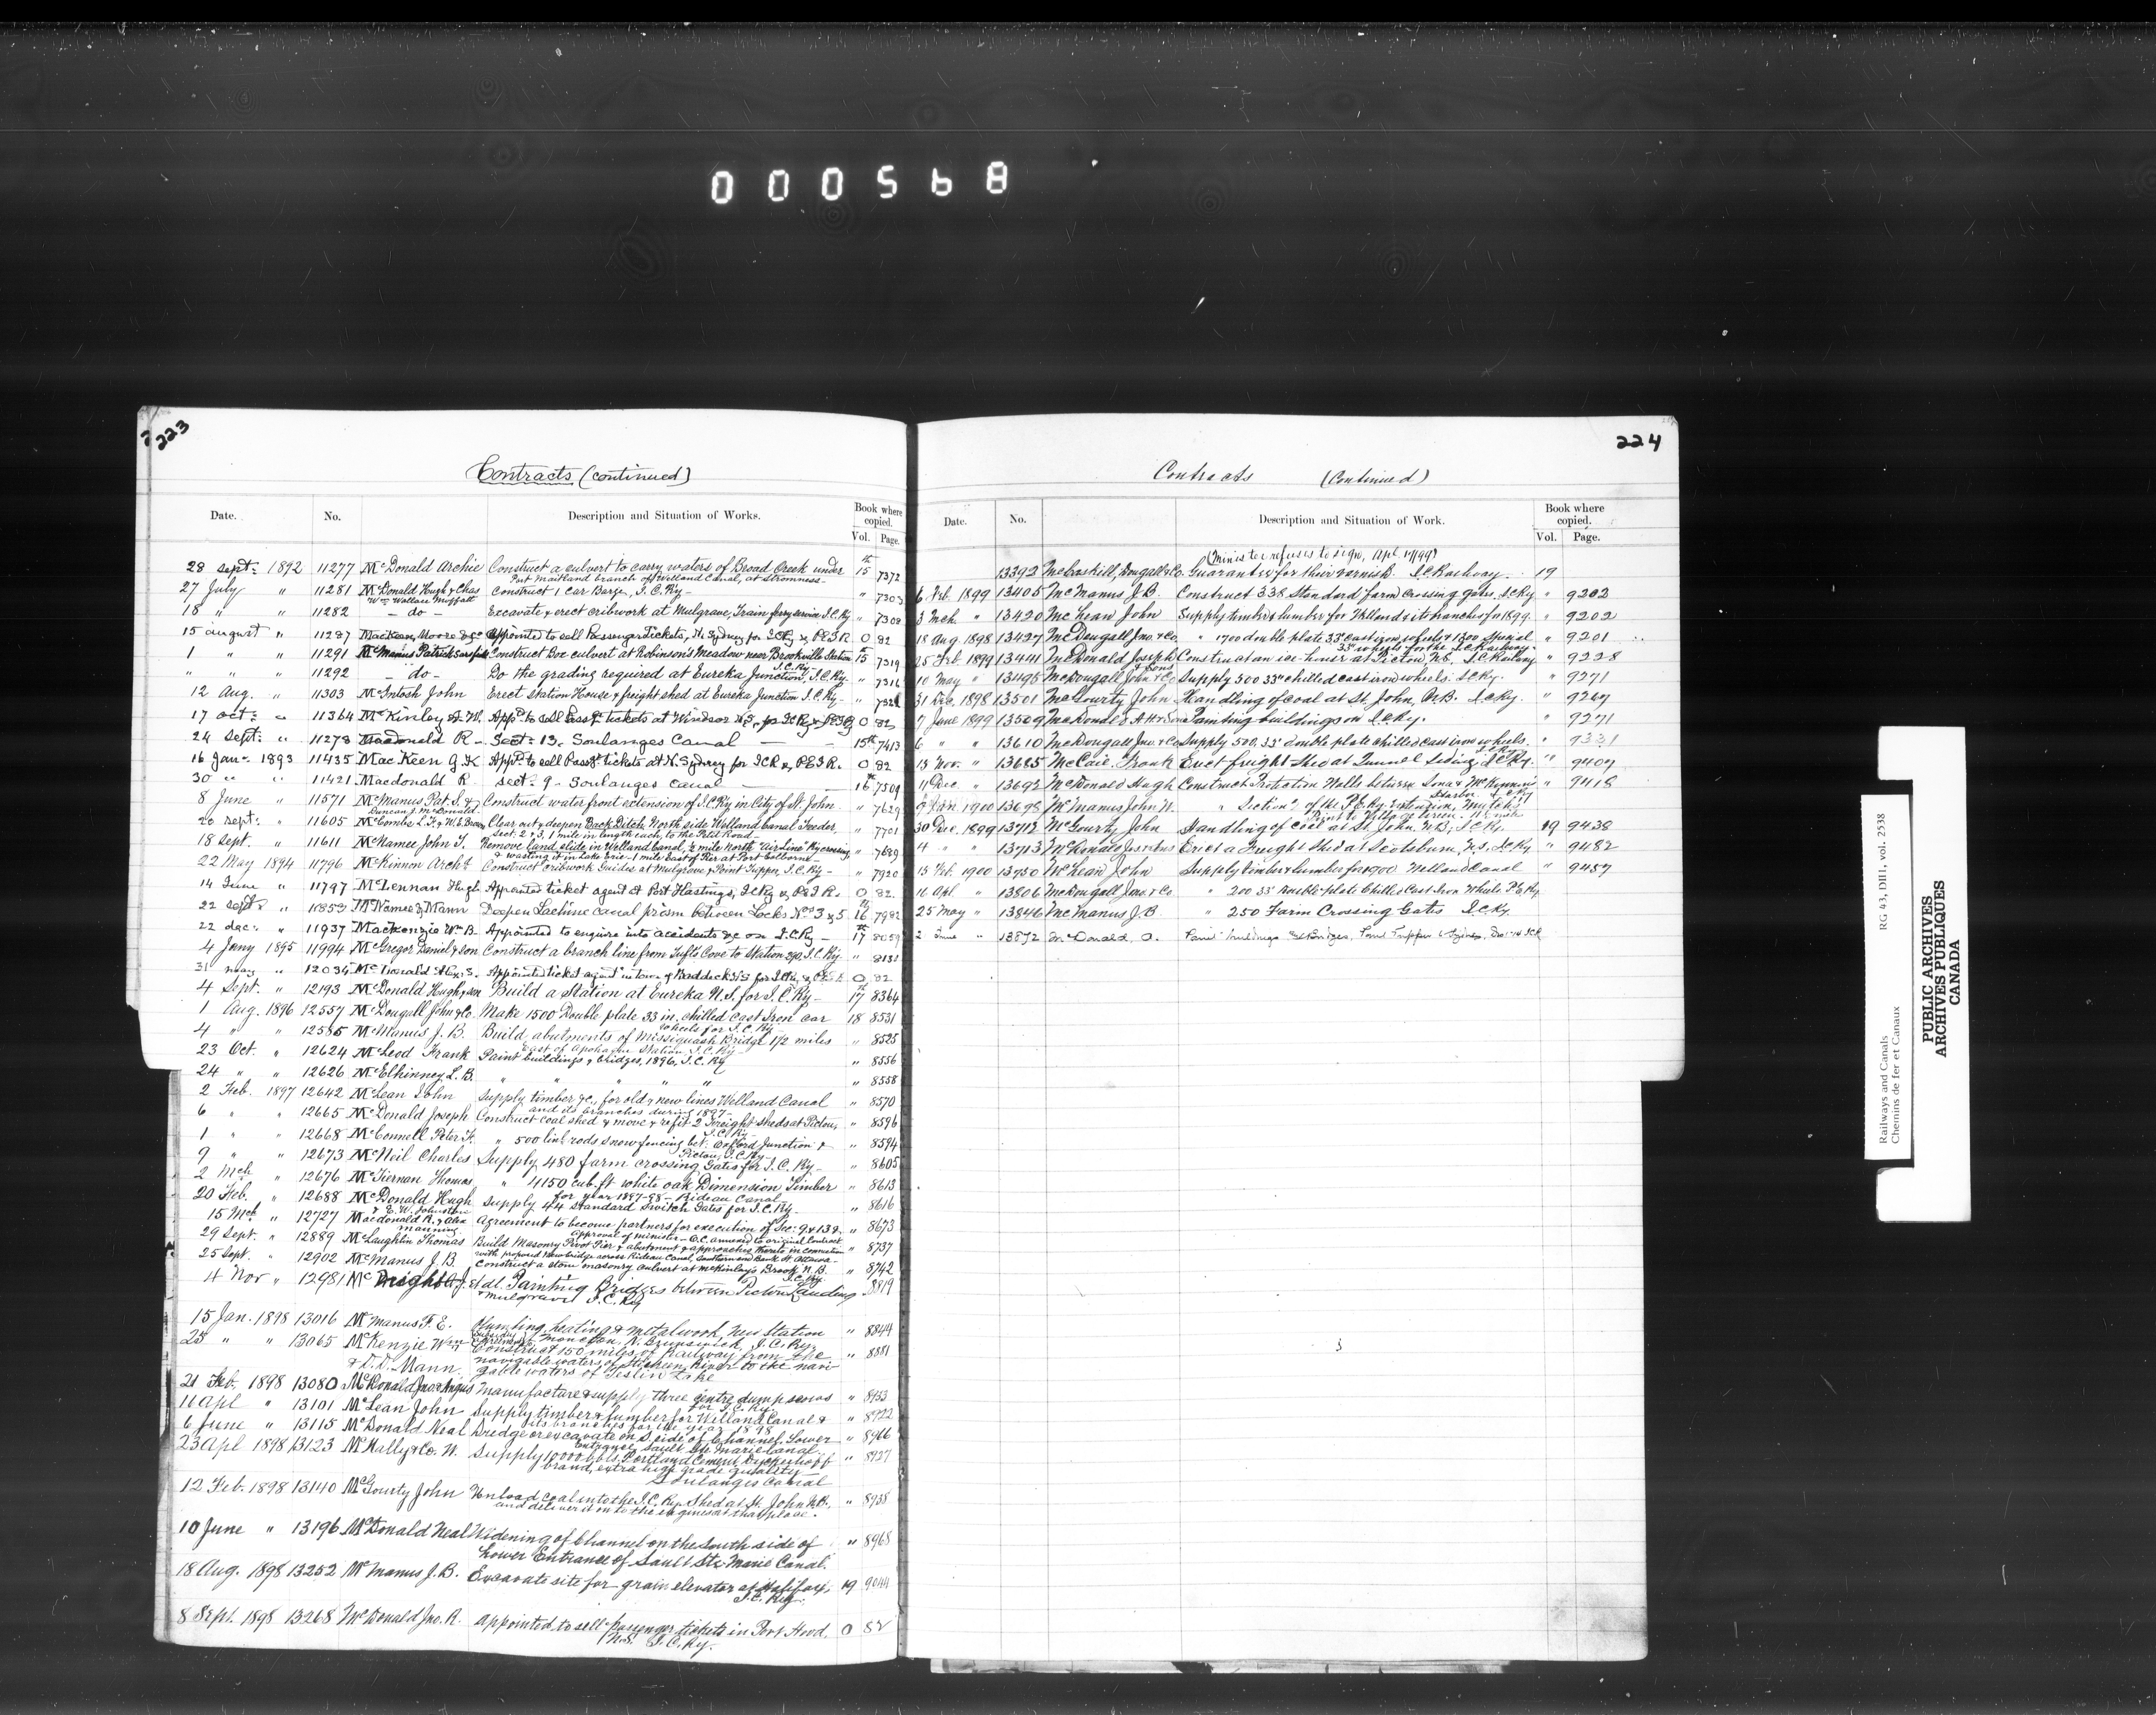 000568
223
Contracts (continued)
Date. No. Description and Situation of Works. Book where copied. Vol. Page.
28 Sept: 1892 11277 McDonald Archie Construct a culvert to carry waters of Broad Creek under 15th 7372
Port Maitland branch of Welland Canal, at Stromness
27 July " 11281 McDonald Hugh & Chas Construct 1 Car Barge, I.C.Ry- " 7303
Wm Wallace Moffatt
18 " " 11282 - do - Excavate & erect cribwork at Mulgrave, Train ferry service I.C.Ry " 7308
15 august " 11287 MacKeen, Moore & Co appointed to sell Passenger Tickets, N. Sydney for ICRy & PEIR O 82
1 " " 11291 McManus Patrick Construct Box culvert at Robinson's Meadow near Brookville Station 15th 7319
I.C.Ry-
" " " 11292 - do - Do the grading required at Eureka Junction, I.C.Ry- " 7316
12 Aug. " 11303 McIntosh John Erect Station House & freight shed at Eureka Junction I.C.Ry- "
17 Oct: " 11364 McKinley A.W. App'd to sell Pass'r tickets at Windsor N.S. for ICRy & PEIRy O 82
24 Sept: " 11273 Macdonald R - Sect: 13. Soulanges Canal - 15th 7413
16 Jan- 1893 11435 MacKeen G.K App'd to sell Pass'r tickets at N. Sydney for ICR & PEIR. O 82
30 " " 11421 Macdonald R. Sect: 9 - Soulanges Canal - 16th 7509
8 June " 11571 McManus Pat. S. & Construct water front extension of I.C.Ry in City of St. John " 7629
Duncan J. McDonald
20 Sept: " 11605 McCombs L.F. & W.E. Brown Clear out & deepen Back Ditch North side Welland Canal Feeder, " 7701
Sect: 2 & 3, 1 mile in length each, to the Petit Road-
18 Sept. " 11611 McNamee John T. Remove land slide in Welland Canal, ½ mile North "Air Line" Ry crossing, " 7689
& wasting it in Lake Erie - 1 mile East of Pier at Port Colborne-
22 May 1894 11796 McKinnon Archd Construct Cribwork Guides at Mulgrave & Point Tupper, I.C.Ry - " 7920
14 June " 11797 McLennan Hugh Appointed ticket agent at Port Hastings, ICRy & PEIR. O 82
22 Sept " 11853 McNamee & Mann Deepen Lachine Canal prism between Locks Nos 3 & 5 16th 7982
22 dec: " 11937 Mackenzie Wm B. Appointed to enquire into accidents &c on I.C.Ry - 17th 8059
4 Jany 1895 11994 McGregor Daniel & Son Construct a branch line from Tufts Cove to Station I.C.Ry. " 8132
31 May " 12034 McDonald Alex. S. Appointed ticket agent in town of Baddeck N.S. for ICRy & PEIR O 82
4 Sept. " 12193 McDonald Hugh & son Build a Station at Eureka N.S. for I.C.Ry - 17th 8364
1 Aug. 1896 12557 McDougall John & Co. Make 1500 Double plate 33 in. chilled cast Iron car 18 8531
wheels for I.C.Ry
4 " " 12575 McManus J.B. Build abutments of Missiquash Bridge 1½ miles " 8525
East of Apohaqui Station I.C.Ry
23 Oct. " 12624 McLeod Frank Paint buildings & bridges, 1896, I.C.Ry " 8556
24 " " 12626 McElhinney L.B. " " " " " 8558
2 Feb. 1897 12642 McLean John Supply timber &c., for old & new lines Welland Canal " 8570
and its branches during 1897-
6 " " 12665 McDonald Joseph Construct coal shed & move & refit 2 Freight Sheds at Pictou, " 8596
I.C.Ry.
1 " " 12668 McConnell Peter F. " 500 lineal rods snow fencing bet: Oxford Junction & " 8594
Pictou, I.C.Ry-
9 " " 12673 McNeil Charles Supply 480 farm crossing Gates for I.C.Ry - " 8605
2 Mch. " 12676 McKiernan Thomas " 4150 cub. ft white oak Dimension Timber " 8613
for year 1897-98 - Rideau Canal-
20 Feb. " 12688 McDonald Hugh Supply 44 Standard Switch Gates for I.C.Ry- " 8616
& E.W. Johnston
15 Mch " 12727 Macdonald R. & Alex Agreement to become partners for execution of Sec: 9 & 13 S. " 8673
Manning approval of minister - O.C. annexed to original Contract
29 Sept. " 12889 McLaughlin Thomas Build Masonry Pivot Pier & abutment & approaches thereto in connection " 8737
with proposed New bridge across Rideau Canal, Southern end Bank St. Ottawa-
25 Sept. " 12902 McManus J.B. Construct a stone masonry culvert at McKinley's Brook N.B. " 8742
I.C.Ry.
4 Nov " 12981 McKnight A.J. et al. Painting Bridges between Pictou Landing 8819
& Mulgrave I.C.Ry
15 Jan. 1898 13016 McManus F.E. Plumbing, heating & metal work, New Station " 8844
Moncton, N. Brunswick, I.C.Ry.
25 " " 13065 McKenzie Wm Construct 150 miles of Railway from the " 8881
& D.D. Mann navigable waters of Stikeen River to the navi-
gable waters of Teslin Lake
21 Feb. 1898 13080 McDonald Jno. & Angus Manufacture & supply three centre dump scows " 8953
for I.C.Ry.
11 Apl " 13101 McLean John Supply timber & lumber for Welland Canal & " 8922
its branches for the year 1898
6 June " 13115 McDonald Neal Dredge or excavate on S side of Channel, Lower " 8966
Entrance Sault Ste Marie Canal
23 Apl 1898 13123 McNally & Co. W. Supply 10000 bbls. Portland Cement, Dyckerhoff " 8927
brand, extra high grade quality -
Soulanges Canal
12 Feb. 1898 13140 McGourty John Unload coal into the I.C.Ry. Shed at St. John N.B. " 8938
and deliver it on to the engines at that place.
10 June " 13196 McDonald Neal Widening of Channel on the South side of " 8968
Lower Entrance of Sault Ste Marie Canal.
18 Aug. 1898 13252 McManus J.B. Excavate site for grain elevator at Halifax, 19 9044
I.C.Ry.
8 Sept. 1898 13268 McDonald Jno. R. Appointed to sell passenger tickets in Port Hood, O 82
N.S. I.C.Ry.
224
Contracts (Continued)
Date. No. Description and Situation of Work. Book where copied. Vol. Page.
(Minister refuses to sign, Apl 17/99)
13392 McCaskill, Dougall & Co. Guarantee for their varnish. I.C.Railway. 19
6 Feb. 1899 13405 McManus J.B. Construct 338 Standard farm crossing gates. I.C.Ry " 9202
3 Mch. " 13420 McLean John Supply timber & lumber for Welland & its branches for 1899. " 9202
18 Aug. 1898 13427 McDougall Jno. & Co. " 1700 double plate 33" cast iron wheels & 1300 special " 9201
33" wheels for the I.C.Railway.
25 Feb. 1899 13441 McDonald Joseph Construct an ice-house at Pictou N.S. I.C.Railway " 9228
& Sons
10 May " 13495 McDougall John & Co Supply 500 33" chilled cast iron wheels. I.C.Ry. " 9271
31 Dec. 1898 13501 McGourty John Handling of coal at St. John, N.B. I.C.Ry. " 9267
7 June 1899 13509 McDonald A.H. & Son Painting buildings on I.C.Ry. " 9271
6 " " 13610 McDougall Jno. & Co Supply 500, 33" double plate chilled cast iron wheels. " 9331
I.C.Ry.
13 Nov. " 13685 McCaie Frank Erect freight shed at Tunnel Siding, I.C.Ry. " 9407
11 Dec. " 13692 McDonald Hugh Construct Protection Walls between Iona & McKinnon's " 9418
Harbor. I.C.Ry
9 Jan 1900 13698 McManus John N. " Section 2 of the P.E.Ry. Extension, Mutch's
Point to Village Green.
30 Dec. 1899 13712 McGourty John Handling of Coal at St. John, N.B; I.C.Ry. 19 9438
4 " " 13713 McDonald Jos. & Sons Erect a Freight Shed at Scotsburn, N.S, I.C.Ry " 9482
15 Feb. 1900 13750 McLean John Supply timber & lumber for 1900 Welland Canal " 9457
16 Apl " 13806 McDougall Jno. & Co " 200 33" Double plate Chilled Cast Iron Wheels P.E.Ry.
25 May " 13846 McManus J.B. " 250 Farm Crossing Gates I.C.Ry.
2 June " 13872 McDonald, D. Paint buildings & Bridges,
RG 43, DII1, vol. 2538
Railways and Canals
Chemins de fer et Canaux
PUBLIC ARCHIVES
ARCHIVES PUBLIQUES
CANADA